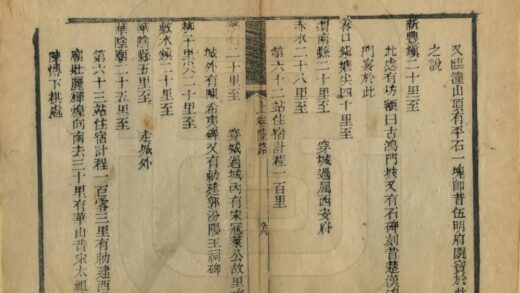 又臨潼山頂有平石一塊即昔伍明府鬪寶於此
之說
新豐鎮二十里至
此處有坊額曰古鴻門坡又有石碑刻昔楚漢鴻
門宴於此
零口鎮塘尖四十里至
渭南縣二十里至 穿城過屬西安府
赤水二十八里至
第六十二站住宿計程一百里
上京陸路
二十里至 穿城過城內有宋寇萊公故里
城外有陳希夷碑又有勅建郭汾陽王祠碑
柳子里尖二十里至
敷水鎮二十里至
華陰縣五里至 走城外
華陰廟二十五里至
第六十三站住宿計程一百零三里有勅建西
廟壯麗輝煌向南去三十里有華山昔宋太祖
陳摶下棋處